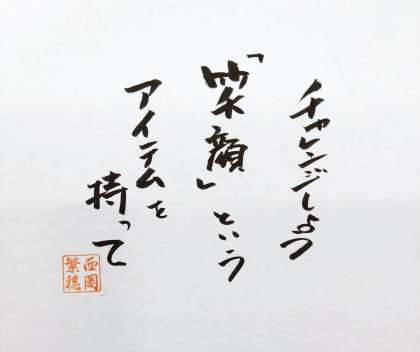 チャレンジしよう
「笑顔」という
アイテムを
持って
西岡
繁穂